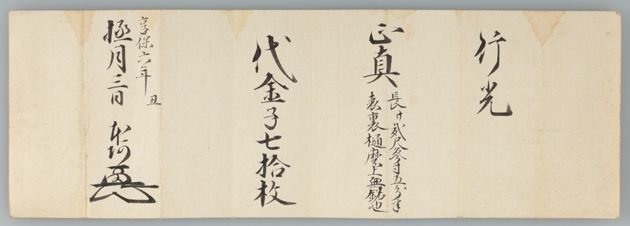 行光
正真
長サ貳尺参寸五分半
表裏樋磨上無銘也
代金子七拾枚
享保六年 丑
極月三日 本阿